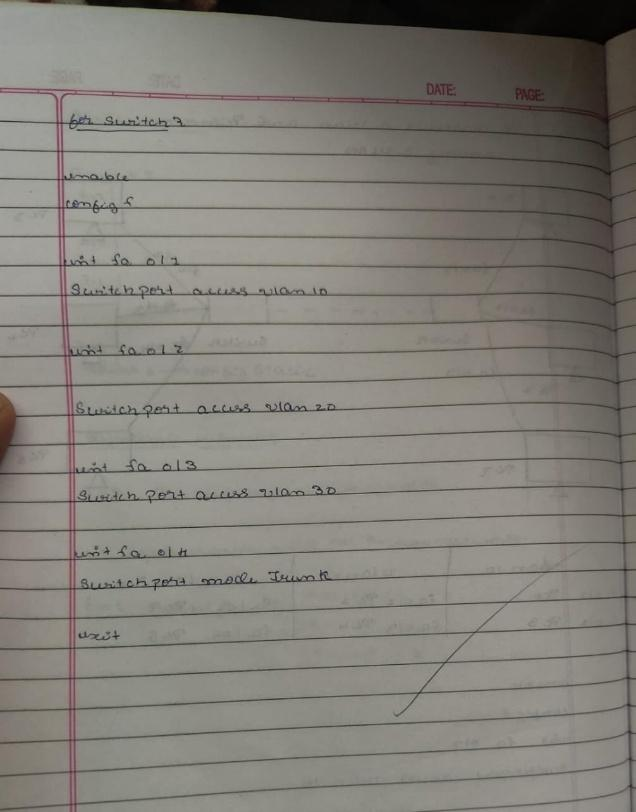 DATE: PAGE:
for Switch 2
enable
config t
int fa 0/1
Switchport access vlan 10
int fa 0/2
Switchport access vlan 20
int fa 0/3
Switch port access vlan 30
int fa 0/4
Switchport mode Trunk
exit